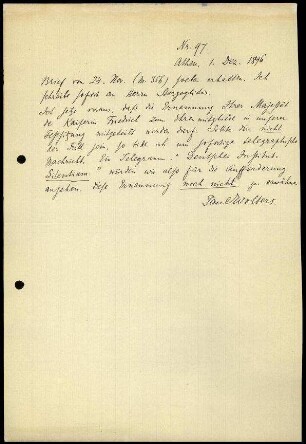 Nr. 97
Athen, 1. Dez. 1896
Brief von 24. Nov. (N. 356) heute erhalten. Ich
schreibe sofort an Herrn
Ich setze voraus, dass die Ernennung Ihrer Majestät
der Kaiserin Friedrich zum Ehrenmitgliede in unserer
Sitzung mitgeteilt werden darf. Sollte dies nicht
der Fall sein, so bitte ich um sofortige telegraphische
Nachricht. Ein Telegramm: "Deutsches Institut.
Silentium" würden wir also für die Aufforderung
ansehen, diese Ernennung noch nicht zu erwähnen.
Paul Wolters